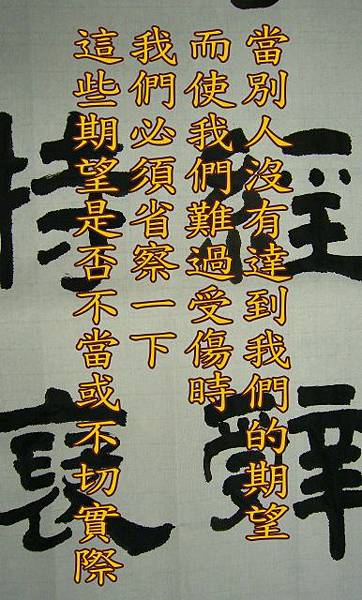 當別人沒有達到我們的期望
而使我們難過受傷時
我們必須省察一下
這些期望是否不當或不切實際